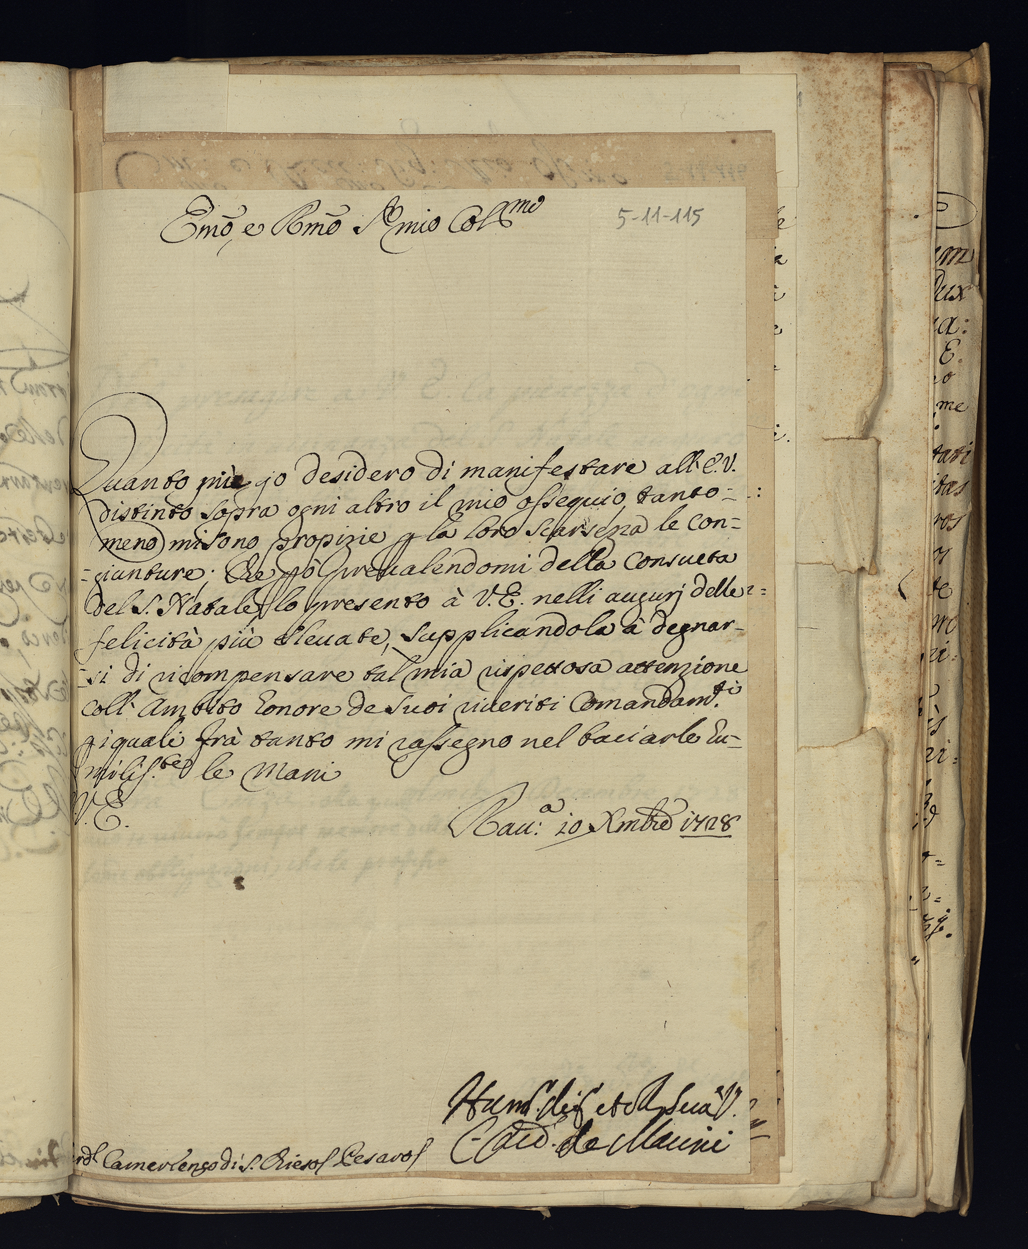 Em̃o, e Rm̃o Sr̃ mio Col.mo
5-11-115
Quanto più jo desidero di manifestare all' E.V.
distinto sopra ogni altro il mio ossequio, tanto=
meno mi sono propizie p la loro scarsezza le con=
=giunture; Che però prevalendomi della consueta
del S. Natale, lo presento à V.E. nelli augurj delle
felicità più elevate, supplicandola à degnar=
=si di ricompensare tal mia rispettosa attenzione
coll' Ambito honore de suoi riveriti Comandam.ti
p i quali frà tanto mi rassegno nel baciarle hu=
milis.te le Mani
V. E.
Rau.a 10 Xmbre 1728
Card. de Marini
Camerlengo di S. Chiesa Pesaro